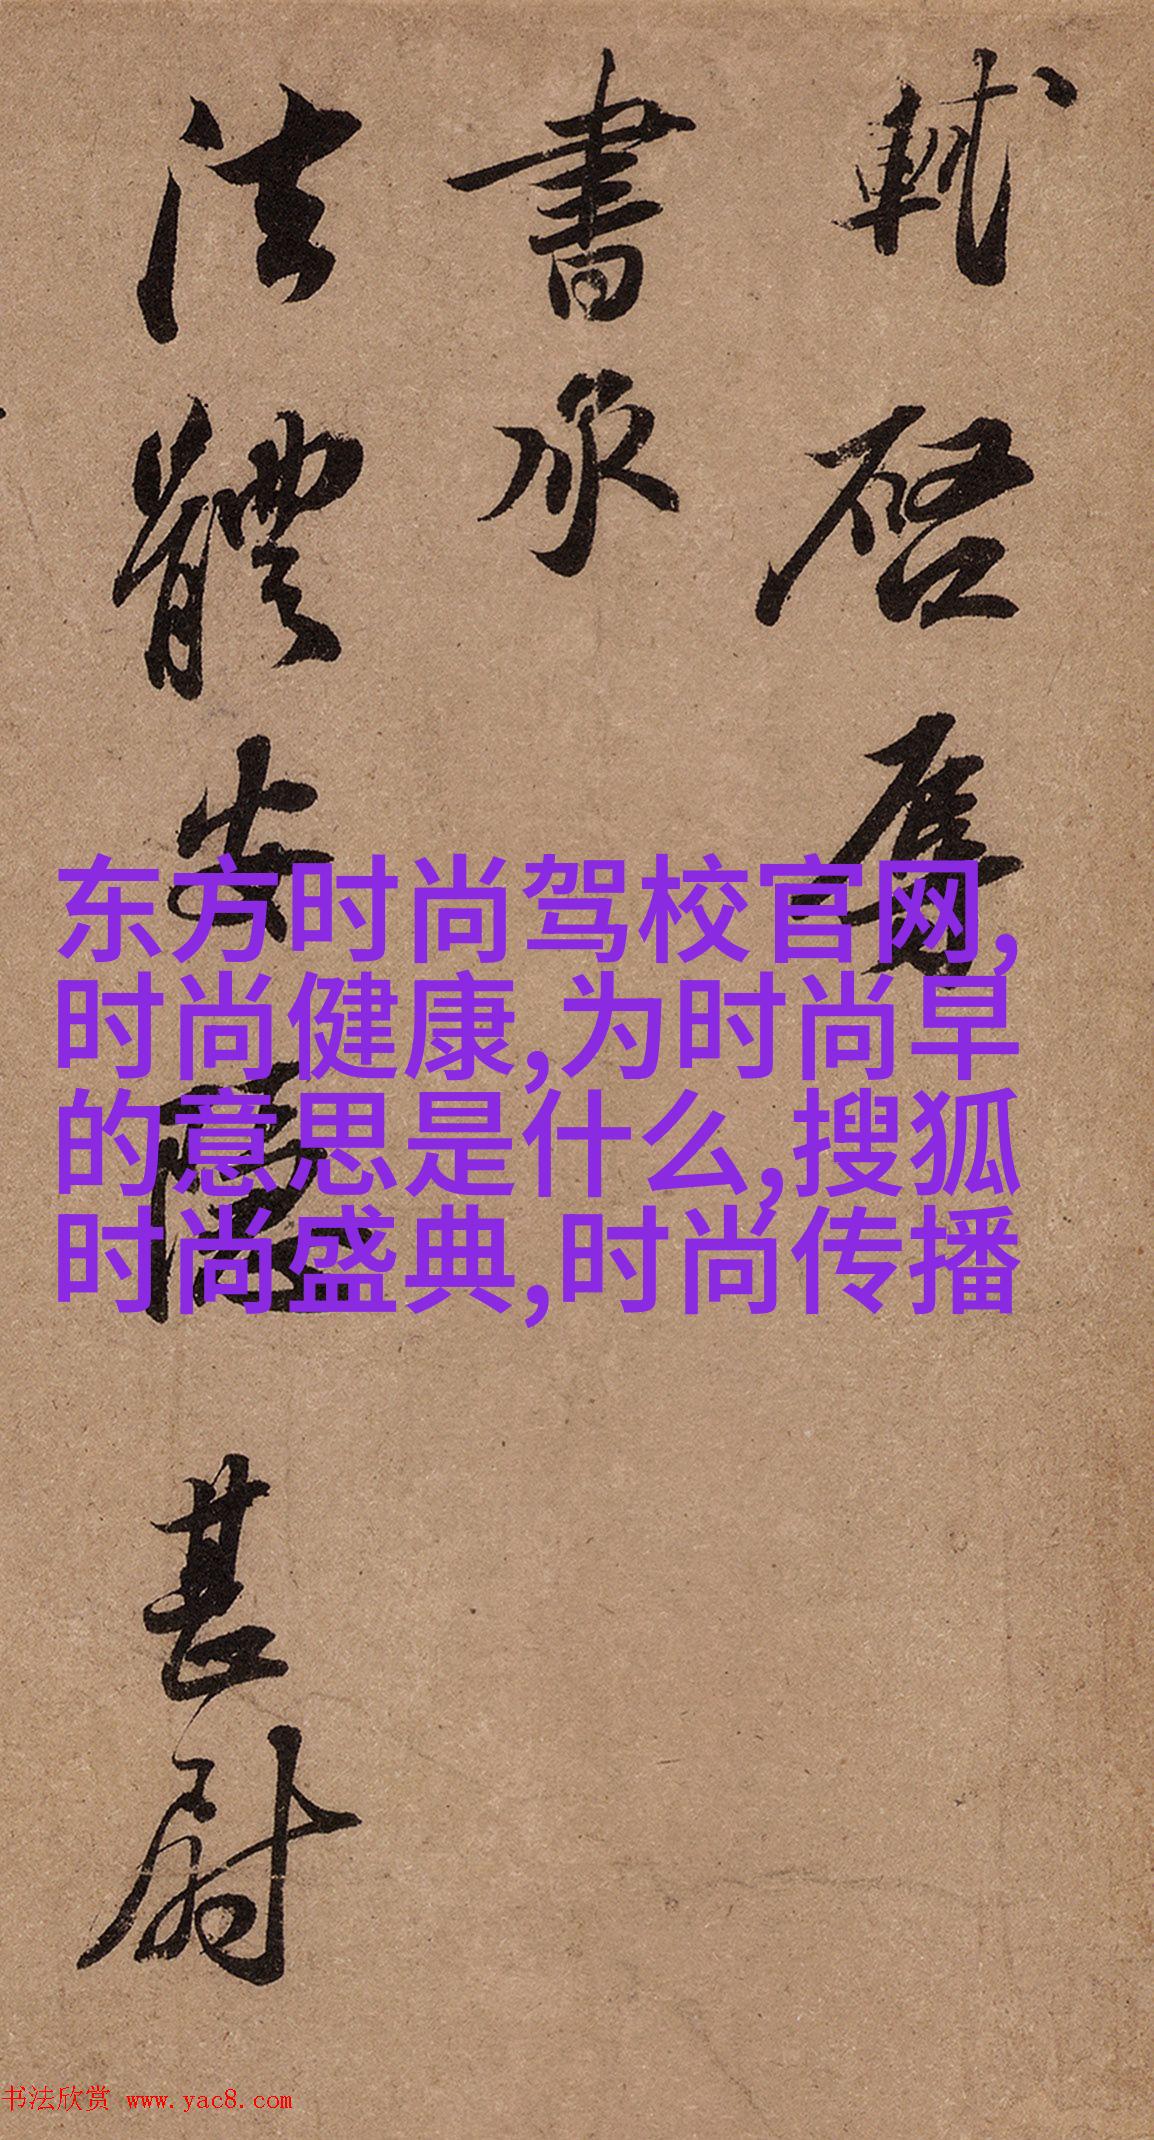 軾啓辱
書承
法體安隱甚慰
东方时尚驾校官网,
时尚健康,为时尚早
的意思是什么,搜狐
时尚盛典,时尚传播
书法欣赏 www.yac8.com